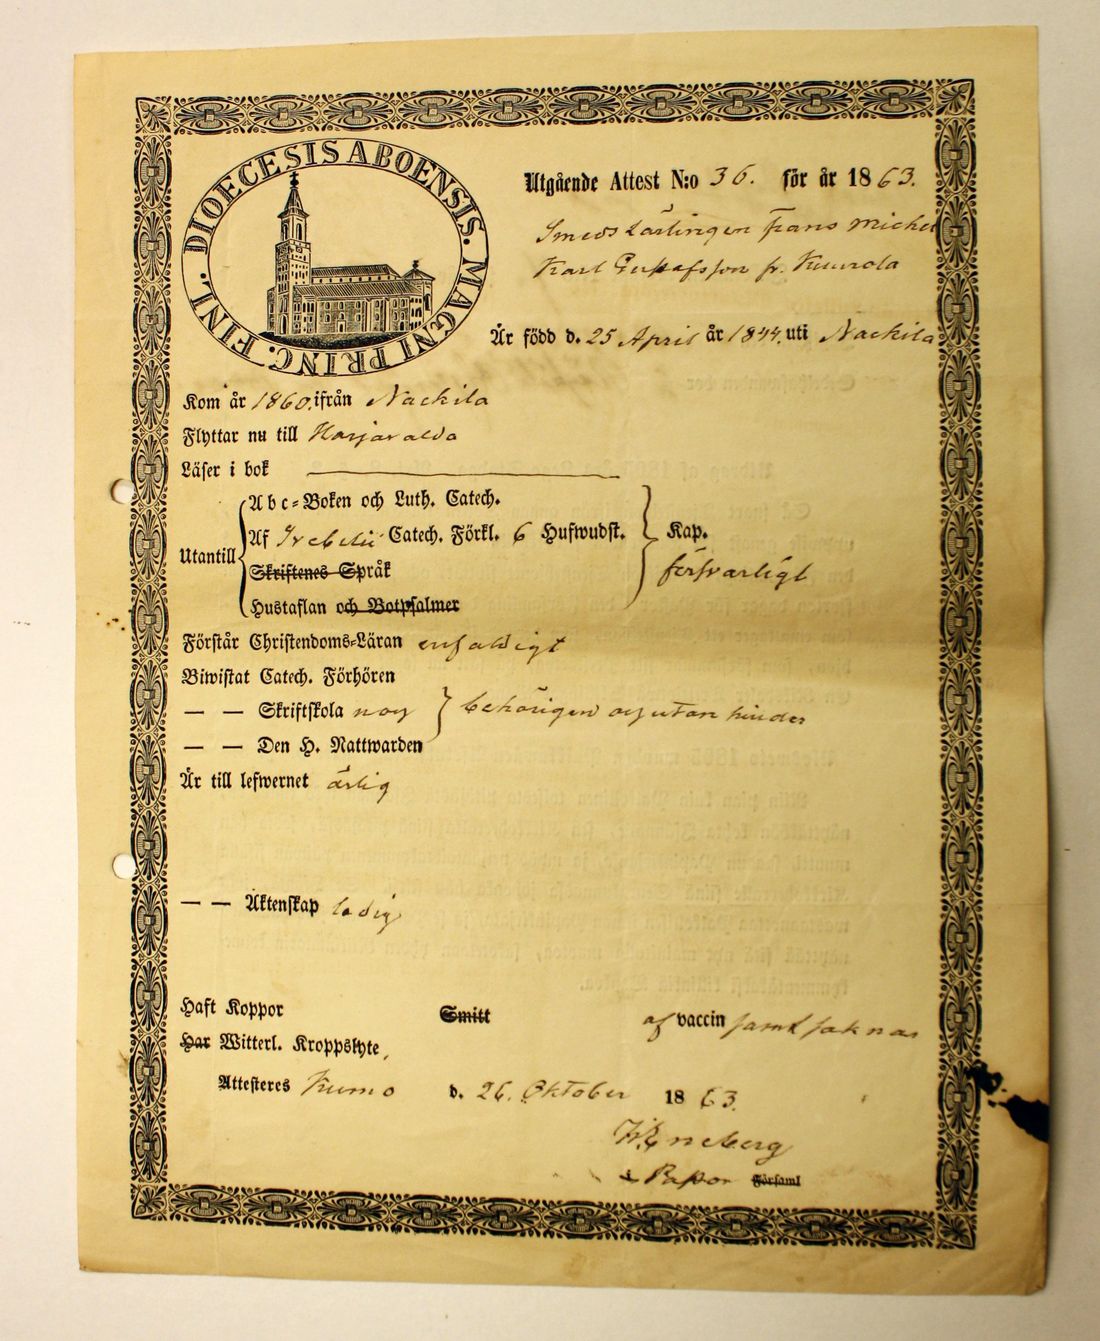 DIOECESIS ABOENSIS. MAGNI PRINC. FINL.
Utgående Attest N:o 36. för år 1863.
Smeds Lärlingen Frans Michel
Karl Gustafsson fr. Kuurola
Är född d. 25 April år 1844. uti Nackila
Kom år 1860. ifrån Nackila
Flyttar nu till Harjavalda
Läser i bok
Utantill
Abc-Boken och Luth. Catech.
Af Svebelii Catech. Förkl. 6 Hufwudst.
Skriftenes Språk
Hustaflan och Botpsalmer
Kap.
försvarligt
Förstår Christendoms-Läran enfaldigt
Biwistat Catech. Förhören
— — Skriftskola nog
— — Den H. Nattwarden
behörigen og utan hinder
Är till lefwernet ärlig
— — Äktenskap ledig
Haft Koppor Smitt af vaccin samt saknar
Har Witterl. Kroppslyte,
Attesteres Kumo d. 26. Oktober 1863.
Församl